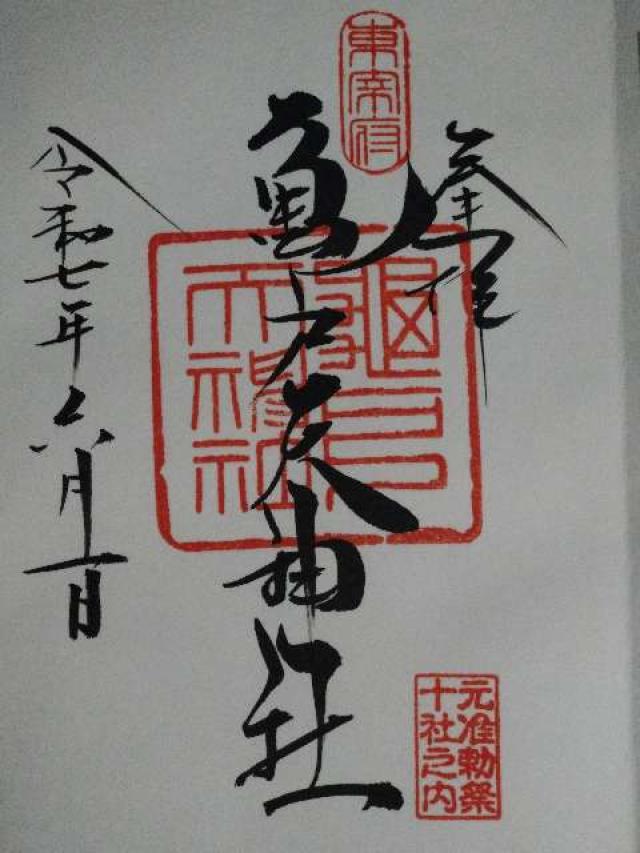 東宰府
奉拝
亀戸天神社
亀戸
天神社
令和七年六月一日
元准勅祭
十社之内